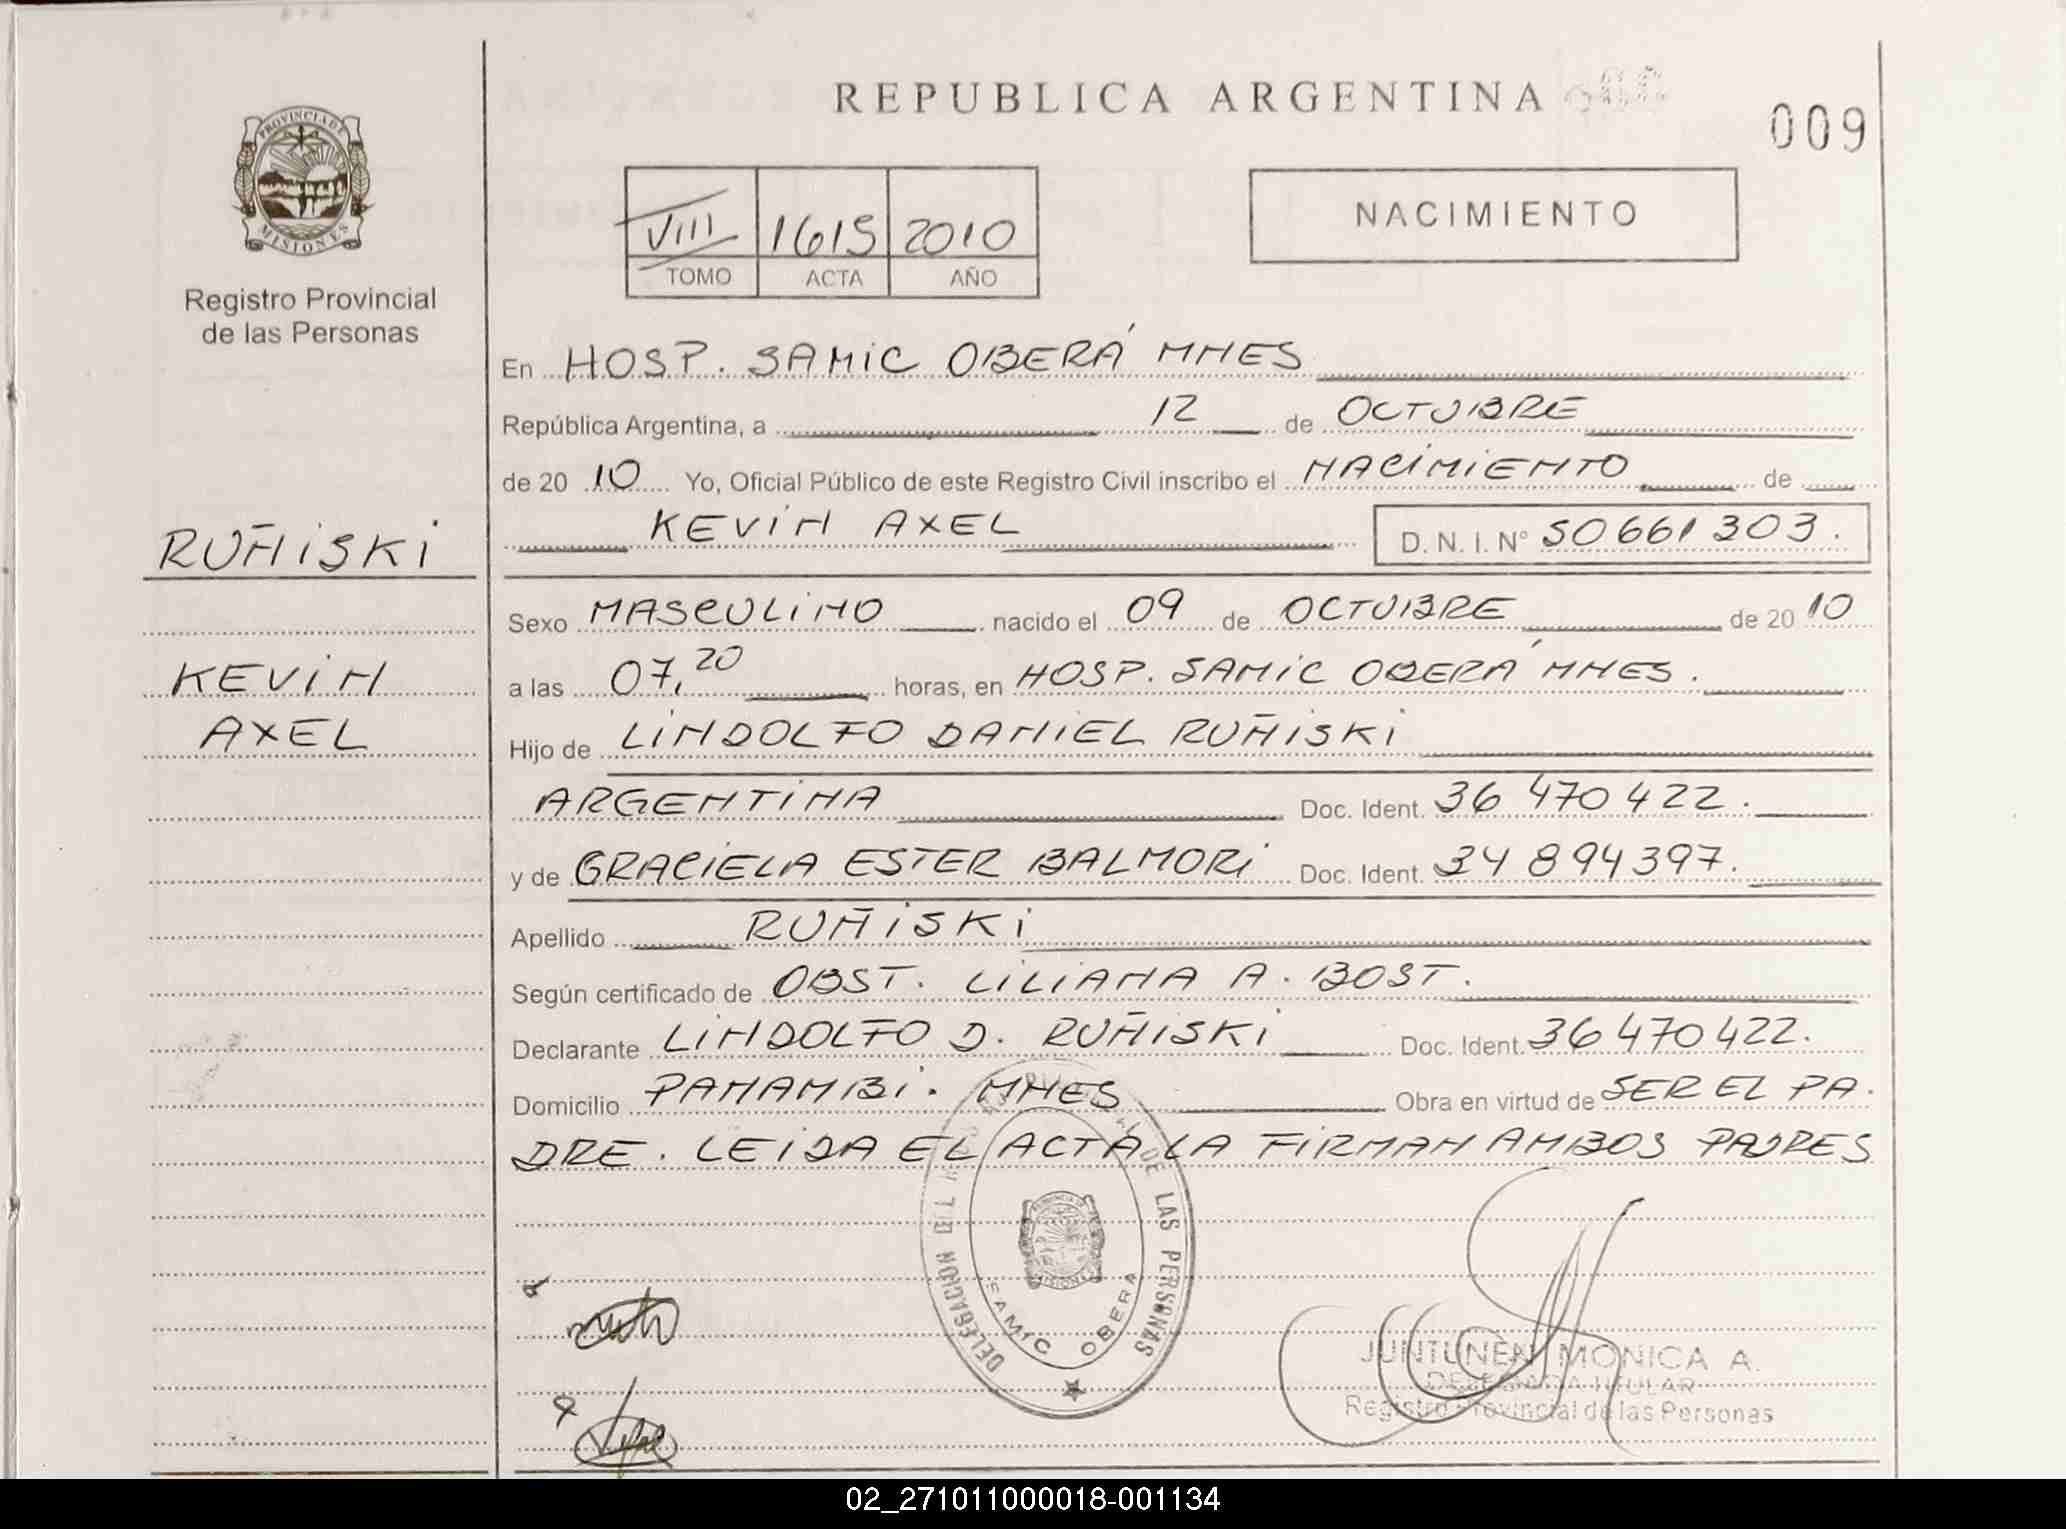 REPUBLICA ARGENTINA
009
PROVINCIA DE
MISIONES
Registro Provincial
de las Personas
VIII 1615 2010
TOMO ACTA AÑO
NACIMIENTO
En HOSP. SAMIC OBERÁ MNES
República Argentina, a 12 de OCTUBRE
de 2010 Yo, Oficial Público de este Registro Civil inscribo el NACIMIENTO de
KEVIN AXEL D. N. I. N° 50661303.
RUÑISKI
KEVIN
AXEL
Sexo MASCULINO nacido el 09 de OCTUBRE de 2010
a las 07,20 horas, en HOSP. SAMIC OBERÁ MNES.
Hijo de LINDOLFO DANIEL RUÑISKI
ARGENTINA Doc. Ident. 36 470 422.
y de GRACIELA ESTER BALMORI Doc. Ident. 34 894 397.
Apellido RUÑISKI
Según certificado de OBST. LILIANA A. BOST.
Declarante LINDOLFO D. RUÑISKI Doc. Ident. 36 470 422.
Domicilio PANAMBI. MNES Obra en virtud de SER EL PA.
DRE. LEIDA EL ACTA LA FIRMAN AMBOS PADRES
DELEGACION DEL DE LAS PERSONAS
MISIONES
SAMIC OBERA
JUNTUNEN MONICA A.
DELEGADA TITULAR
Registro Provincial de las Personas
02_271011000018-001134